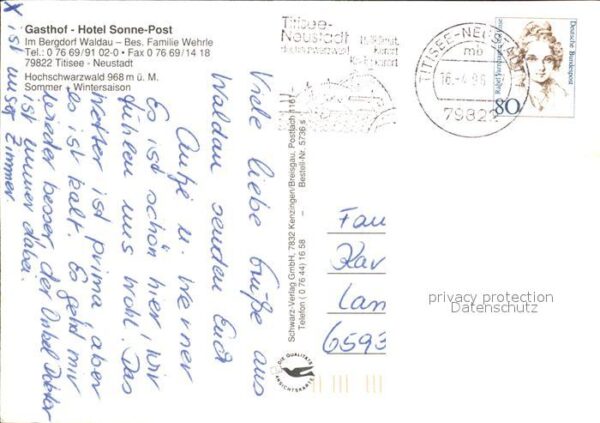 Gasthof - Hotel Sonne-Post
Im Bergdorf Waldau – Bes. Familie Wehrle
Tel.: 0 76 69/91 02-0 • Fax 0 76 69/14 18
79822 Titisee - Neustadt
Hochschwarzwald 968 m ü. M.
Sommer + Wintersaison
Titisee-
Neustadt
TITISEE-NEUSTADT 1
mb
16.-4.96
79822
Deutsche Bundespost
80
Viele liebe Grüße aus
Waldau senden Euch
Antje u. Werner
Es ist schön hier, wir
fühlen uns wohl. Das
Wetter ist prima aber
es ist kalt. Es geht mir
wieder besser, der Onkel Doktor
ist immer dabei.
X ist unser Zimmer.
Schwarz-Verlag GmbH, 7832 Kenzingen/Breisgau, Postfach 1161
Telefon (0 76 44) 16 58 – Bestell-Nr. 5736 s
Fam
Kar
Lan
6593
privacy protection
Datenschutz
DIE QUALITÄTS
ANSICHTSKARTE